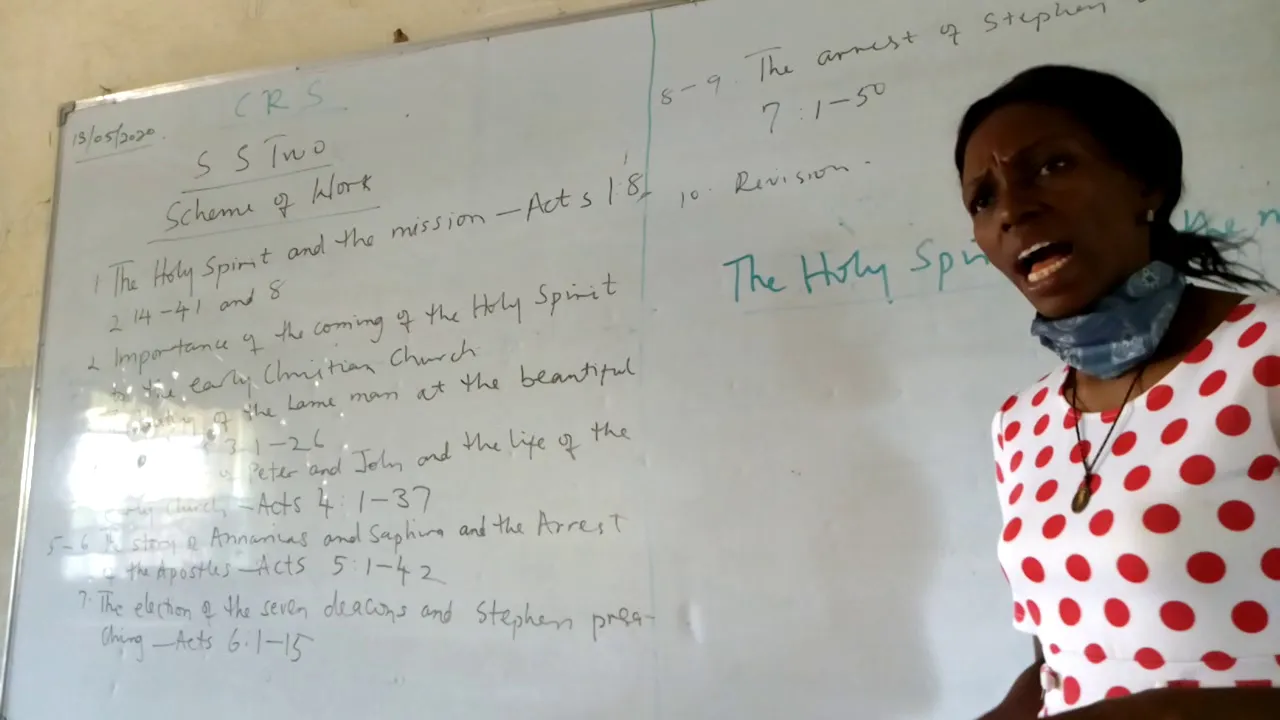 CRS
13/05/2020.
SS Two
Scheme of Work
1 The Holy Spirit and the mission – Acts 1:8
2 14-41 and 8
2 Importance of the coming of the Holy Spirit
to the early Christian Church
of the Lame man at the beautiful
3 1-26
Peter and John and the life of the
Church – Acts 4:1-37
5-6 story Annanias and Saphira and the Arrest
of the Apostles – Acts 5:1-42
7. The election of the seven deacons and Stephen prea-
ching – Acts 6.1-15
8-9. The arrest of Stephen
7:1-50
10. Revision.
The Holy the